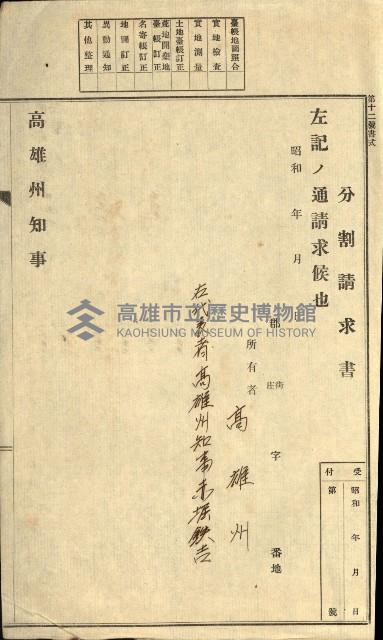 第十二號書式
臺帳地圖照合
實地檢查
實地測量
土地臺帳訂正
臺帳訂正
名寄帳訂正
地圖訂正
異動通知
其他整理
分割請求書
左記ノ通請求候也
昭和 年 月
郡
街
庄
字
番地
所有者
高雄州
右代表者高雄州知事赤堀鉄吉
高雄州知事
受付
昭和 年 月 日
第 號
高雄市立歷史博物館
KAOHSIUNG MUSEUM OF HISTORY